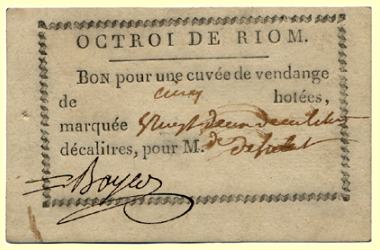 OCTROI DE RIOM.
BON pour une cuvée de vendange
de cinq hotées,
marquée
décalitres, pour M. de
Boyer